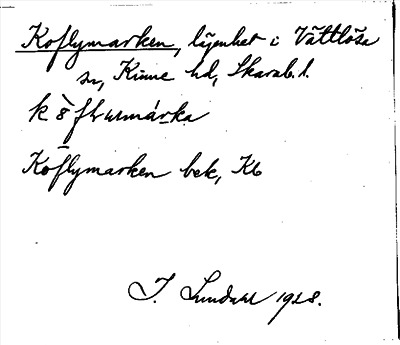 Koflymarken, lägenhet i Vättlösa
sn, Kinne hd, Skarab. l.
Koflymarken bek, Kb
I. Lundahl 1928.